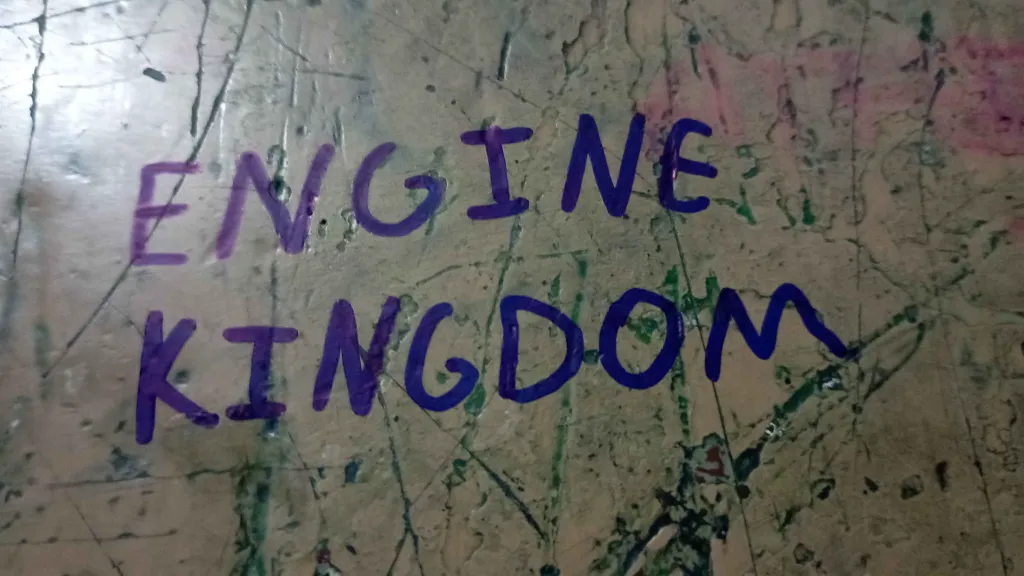 ENGINE
KINGDOM